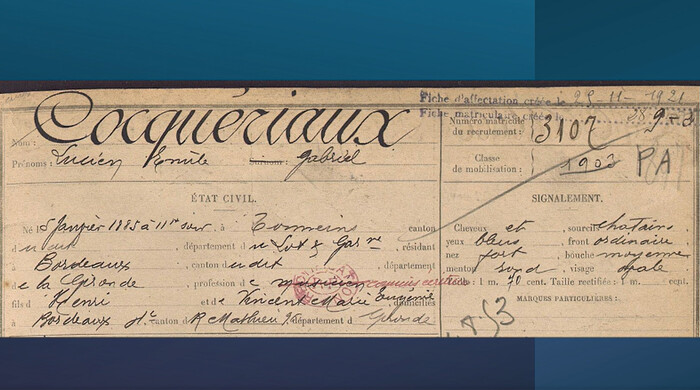 Fiche d'affectation créée le 25-11-1921
Fiche matriculaire créée le
Cocquériaux
Nom :
Prénoms : Lucien Emile Surnom : Gabriel
Numéro matricule
du recrutement : 3107
Classe
de mobilisation : 1903
PA
ÉTAT CIVIL.
Né le 5 Janvier 1885 à 11h soir, à Tonneins canton
dudit, département du Lot & Garne, résidant
à Bordeaux cn dudit, département
de la Gironde, profession de musicien
fils d'Henri et de Vincent Marie Eugénie domiciliés
à Bordeaux, canton d, R Mathieu, département d Gironde
SIGNALEMENT.
Cheveux et sourcils chatains
yeux bleus, front ordinaire
nez fort, bouche moyenne
menton rond, visage ovale
Taille : 1 m. 70 cent. Taille rectifiée : 1 m. cent.
MARQUES PARTICULIÈRES :